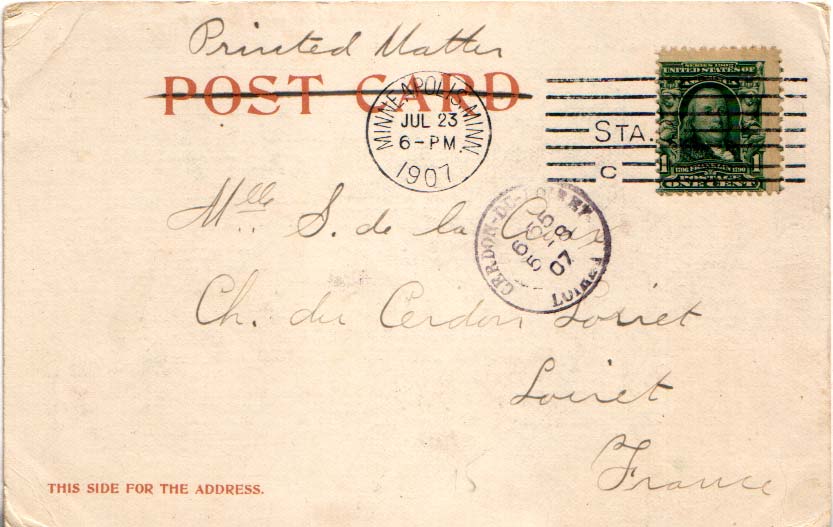 Printed Matter
POST CARD
MINNEAPOLIS, MINN.
JUL 23
6-PM
1907
STA.
C
SERIES 1902
UNITED STATES OF
AMERICA
1 FRANKLIN 1
POSTAGE
ONE CENT
CERDON-DU-LOIRET
5-8
07
LOIRET
Mlle S. de la
Ch. du Cerdon Loiret
Loiret
France
THIS SIDE FOR THE ADDRESS.